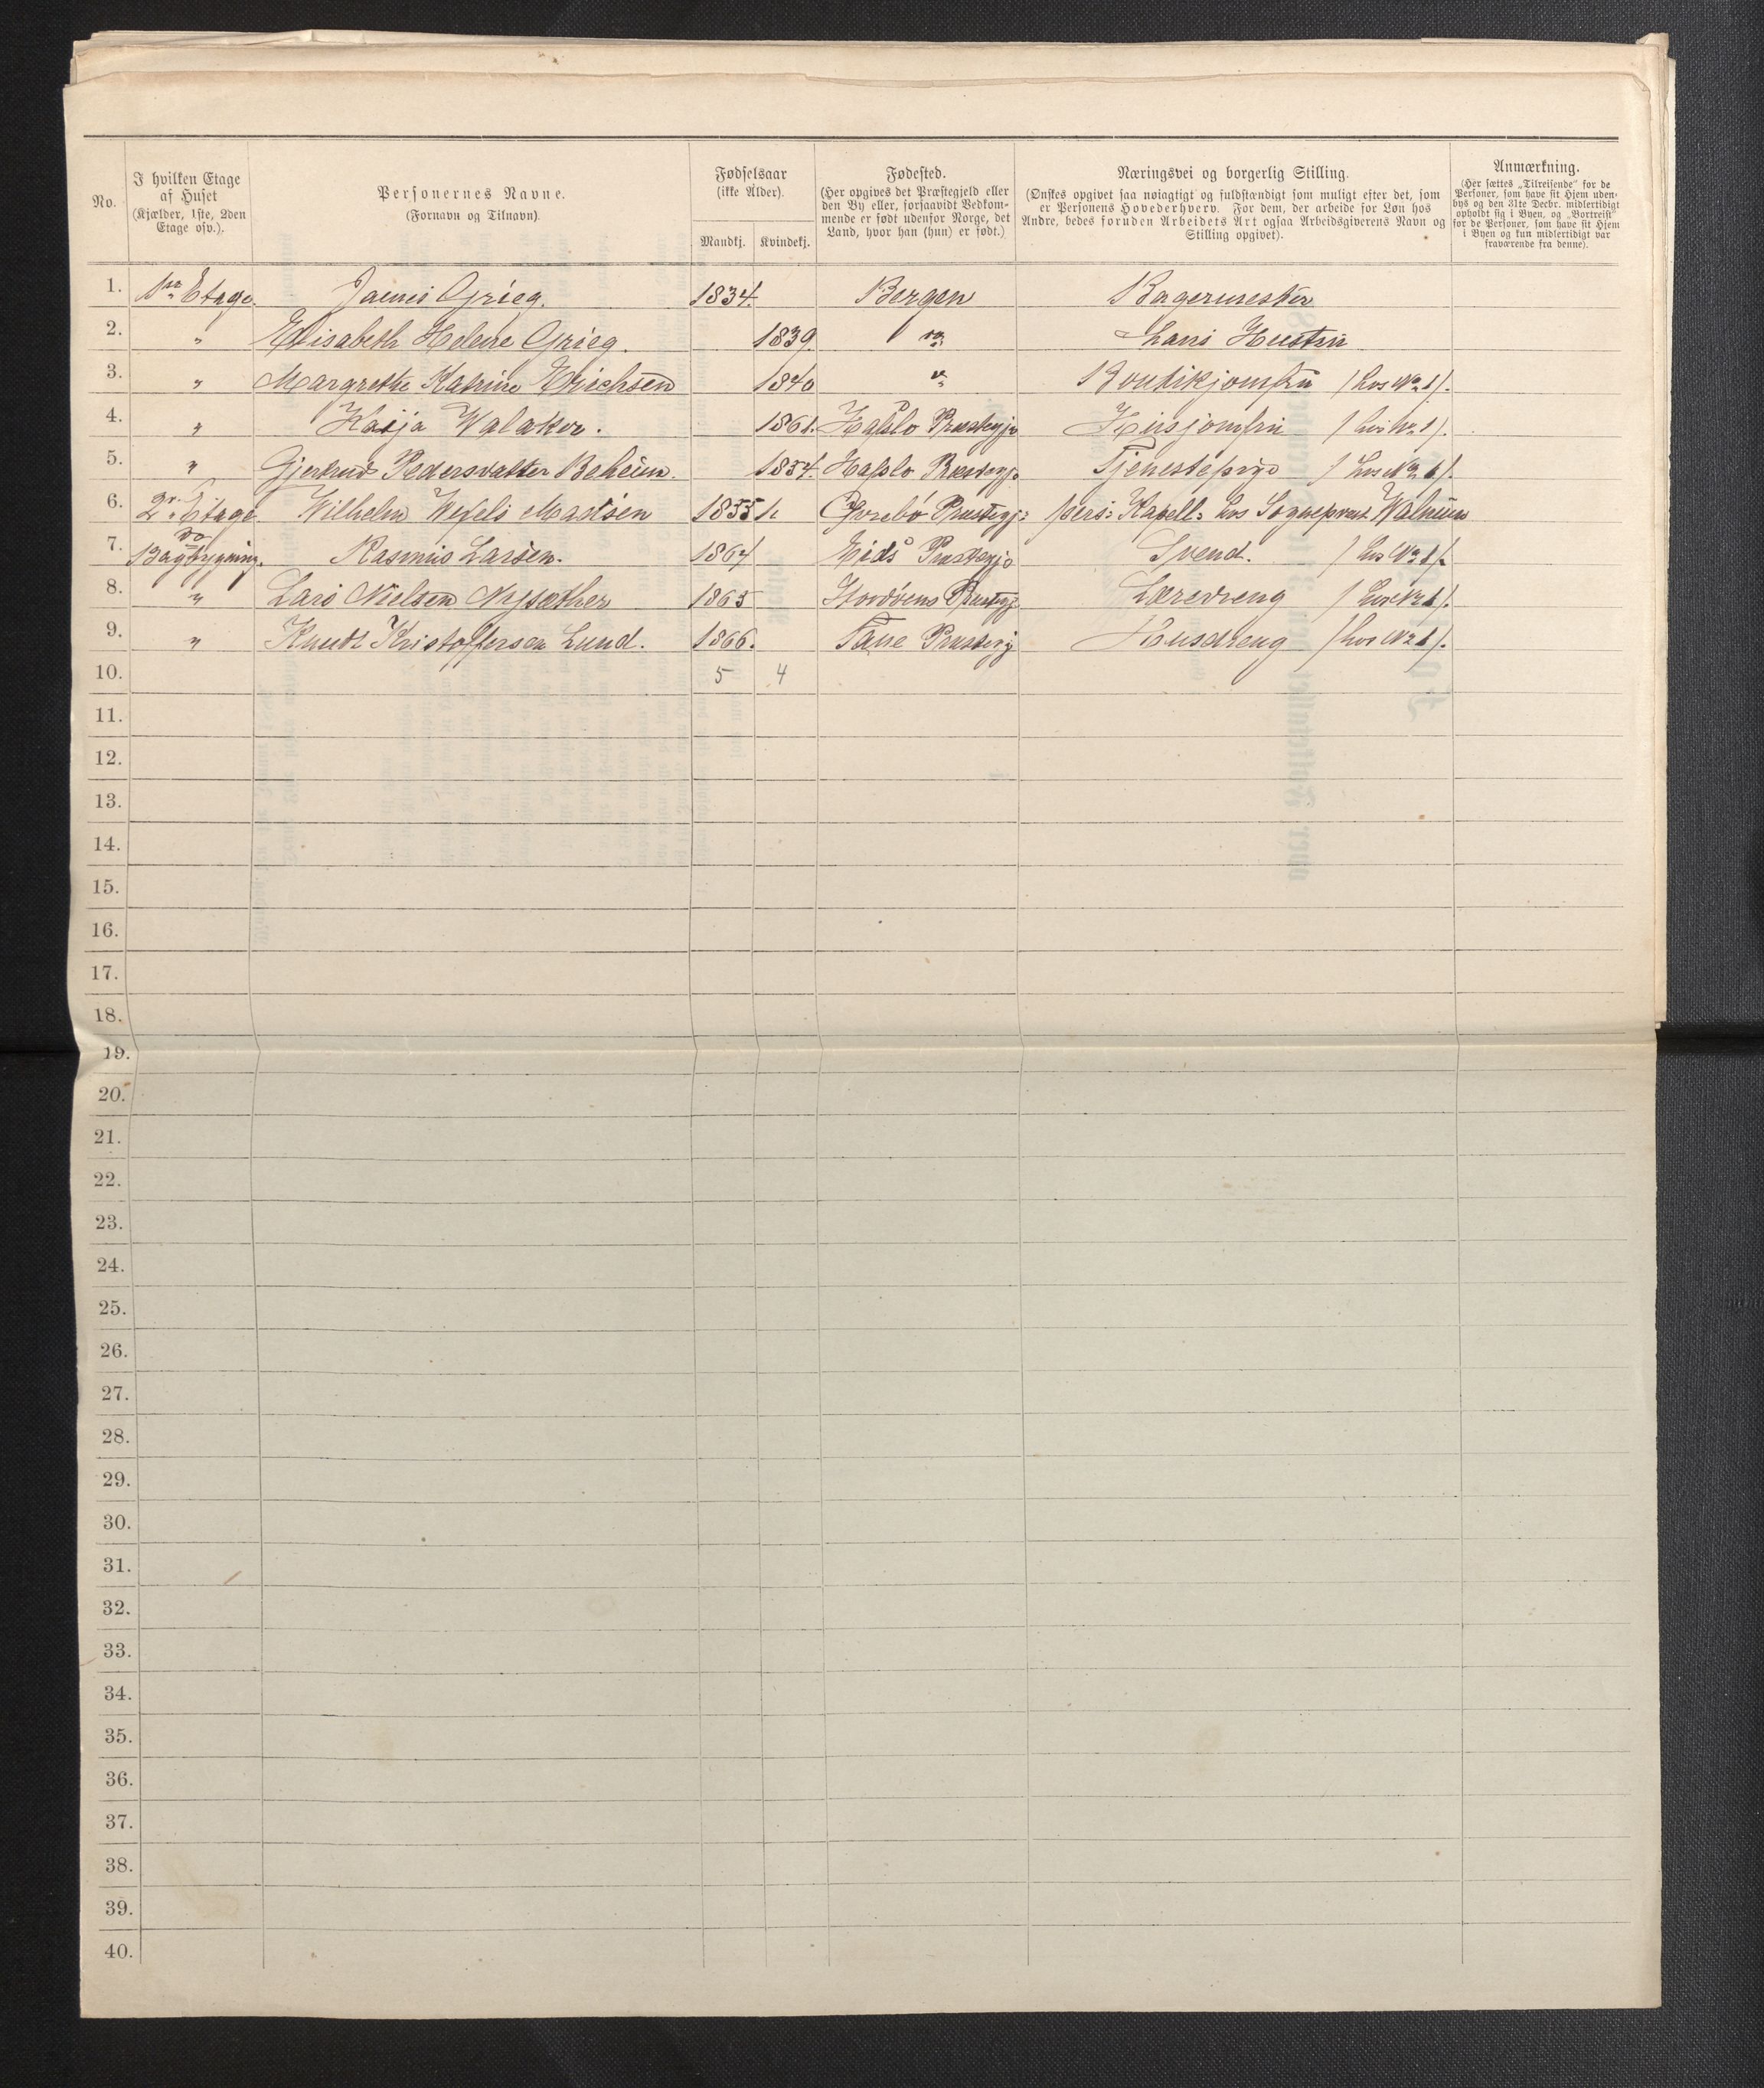 No.
I hvilken Etage
af Huset
(Kjælder, 1ste, 2den
Etage osv.).
Personernes Navne.
(Fornavn og Tilnavn).
Fødselsaar
(ikke Alder).
Mandkj. Kvindekj.
Fødested.
(Her opgives det Præstegjeld eller
den By eller, forsaavidt Vedkom-
mende er født udenfor Norge, det
Land, hvor han (hun) er født.)
Næringsvei og borgerlig Stilling.
(Ønskes opgivet saa nøiagtigt og fuldstændigt som muligt efter det, som
er Personens Hovederhverv. For dem, der arbeide for Løn hos
Andre, bedes foruden Arbeidets Art ogsaa Arbeidsgiverens Navn og
Stilling opgivet).
Anmærkning.
(Her sættes „Tilreisende" for de
Personer, som have sit Hjem uden-
bys og den 31te Decbr. midlertidigt
opholdt sig i Byen, og „Bortreist"
for de Personer, som have sit Hjem
i Byen og kun midlertidigt var
fraværende fra denne).
1. Etage James Grieg. 1834. Bergen Bagermester
2. " Elisabeth Helene Grieg. 1839. Hans Hustru
3. " Margrethe Katrine Erichsen 1840 " Boutikjomfru / hos No 1/.
4. " Kaija Walaker. 1861. Hafslo Præstegj: Husjomfru / hos No 1/.
5. " Gjertrud Pedersdatter Beheim. 1854. Hafslo Præstegj: Tjenestepige / hos No 1/.
6. 2. Etage Wilhelm Wefels Madsen 1855 Præstegj: pers: Kapell: hos Sogneprest
do
7. Bagbygning. Rasmus Larsen. 1864 Eids Præstegj: Svend. / hos No 1/.
8. " Lars Nielsen Nysæther 1865 Præstegj: Læredreng / hos No 1/.
9. " Knudt Kristoffersen Lund. 1866. Præstegj Husdreng / hos No 1/.
10. 5 4
11.
12.
13.
14.
15.
16.
17.
18.
19.
20.
21.
22.
23.
24.
25.
26.
27.
28.
29.
30.
31.
32.
33.
34.
35.
36.
37.
38.
39.
40.